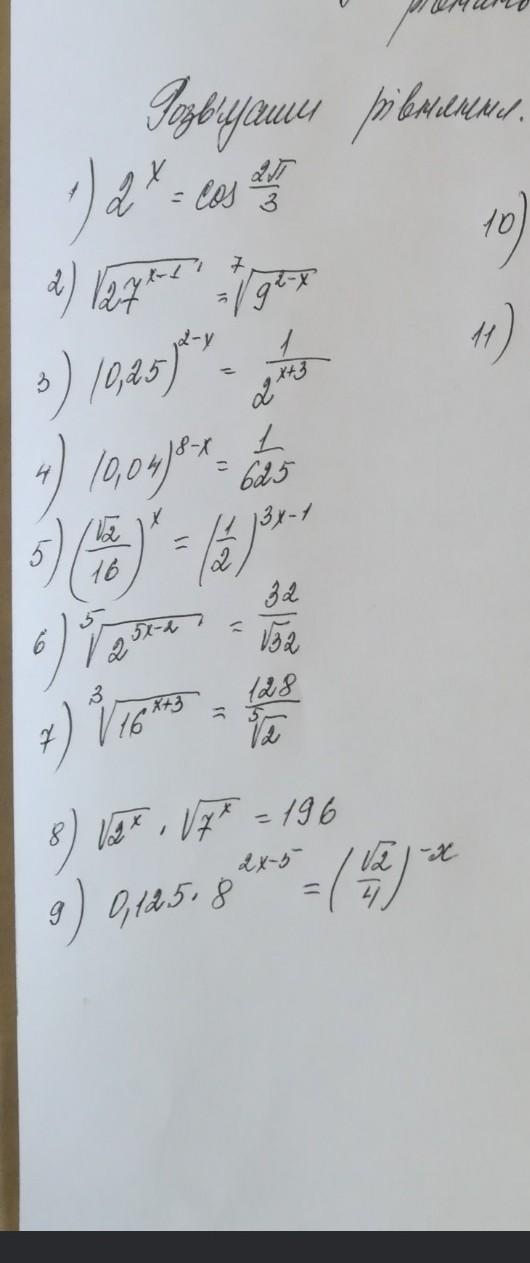 Розв'язати рівняння.
1) 2^x = cos 2π/3
10)
2) √(27^(x-1)) = ⁷√(9^(2-x))
11)
3) (0,25)^(2-x) = 1/2^(x+3)
4) (0,04)^(8-x) = 1/625
5) (√2/16)^x = (1/2)^(3x-1)
6) ⁵√(2^(5x-2)) = 32/√32
7) ³√(16^(x+3)) = 128/⁵√2
8) √(2^x) · √(7^x) = 196
9) 0,125 · 8^(2x-5) = (√2/4)^(-x)